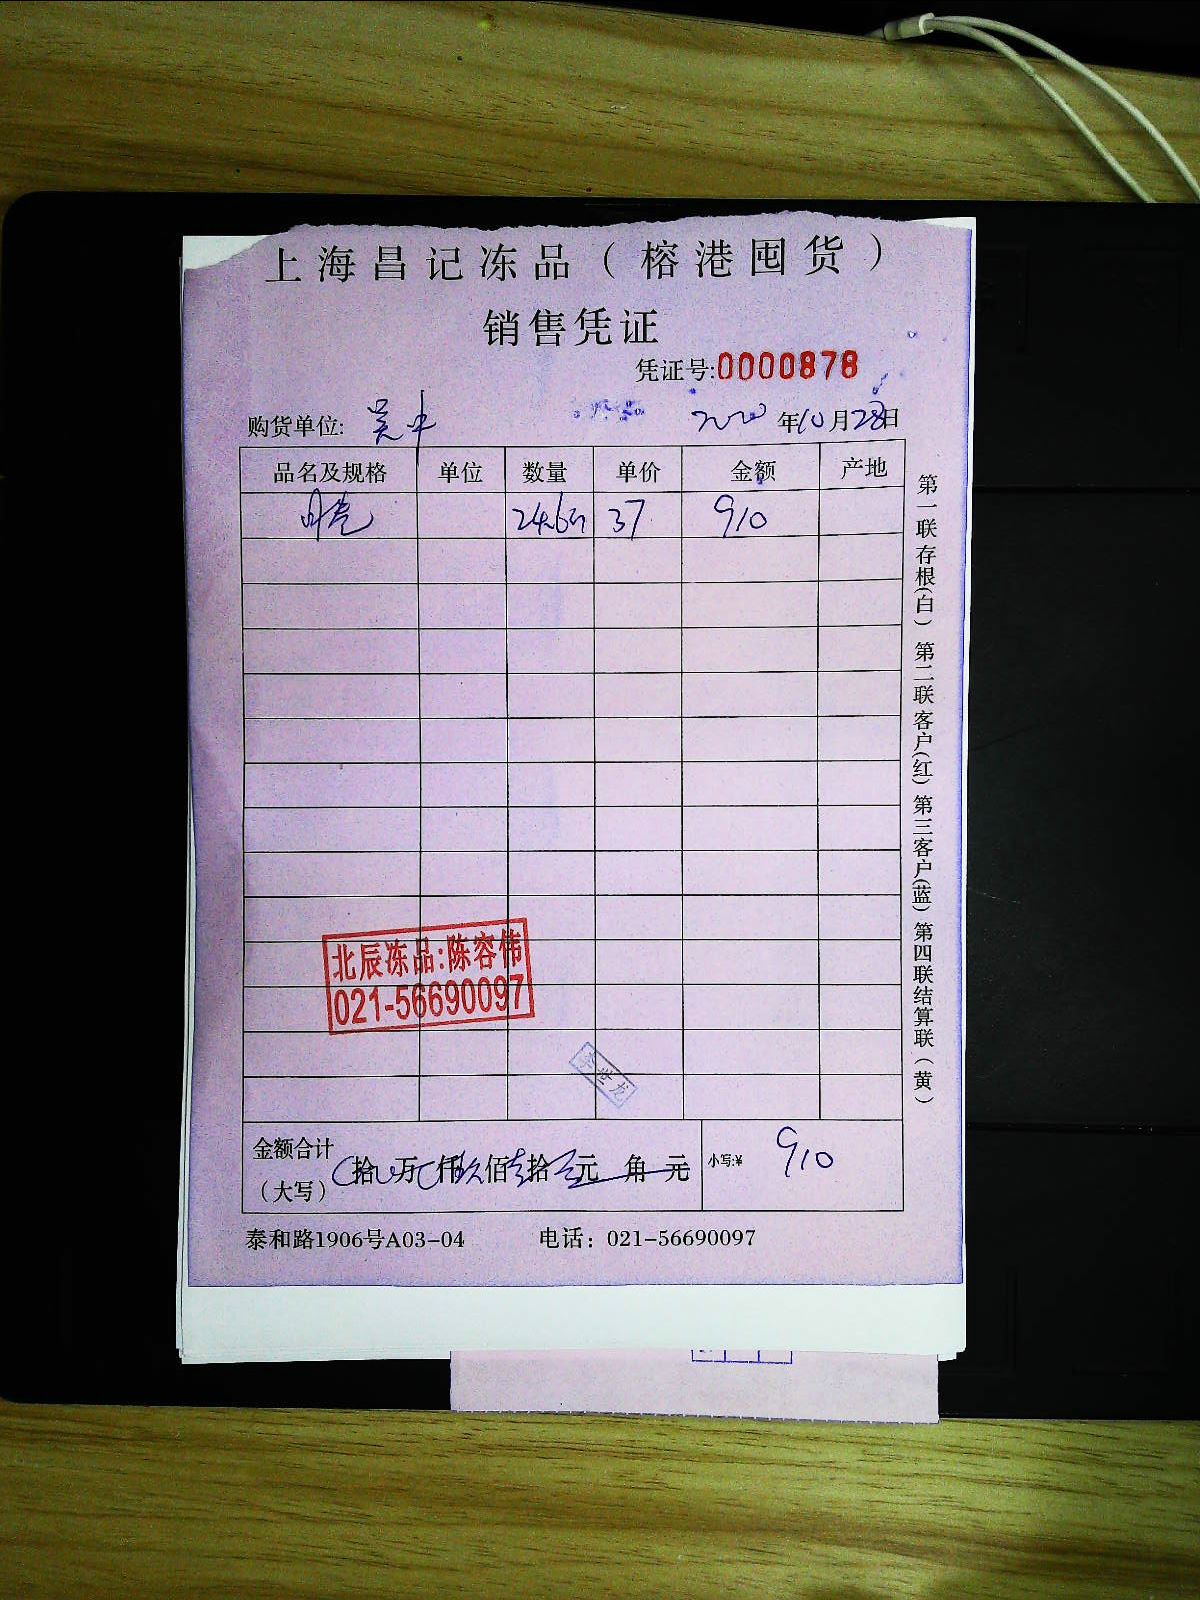 上海昌记冻品（榕港囤货）
销售凭证
凭证号:0000878
购货单位: 吴中 2020年10月28日
品名及规格 单位 数量 单价 金额 产地
24.6斤 37 910
北辰冻品:陈容伟
021-56690097
李世龙
金额合计（大写） 拾 万 仟 玖佰 壹拾 元 角 元 小写:¥ 910
泰和路1906号A03-04 电话：021-56690097
第一联存根(白) 第二联客户(红) 第三客户(蓝) 第四联结算联（黄）